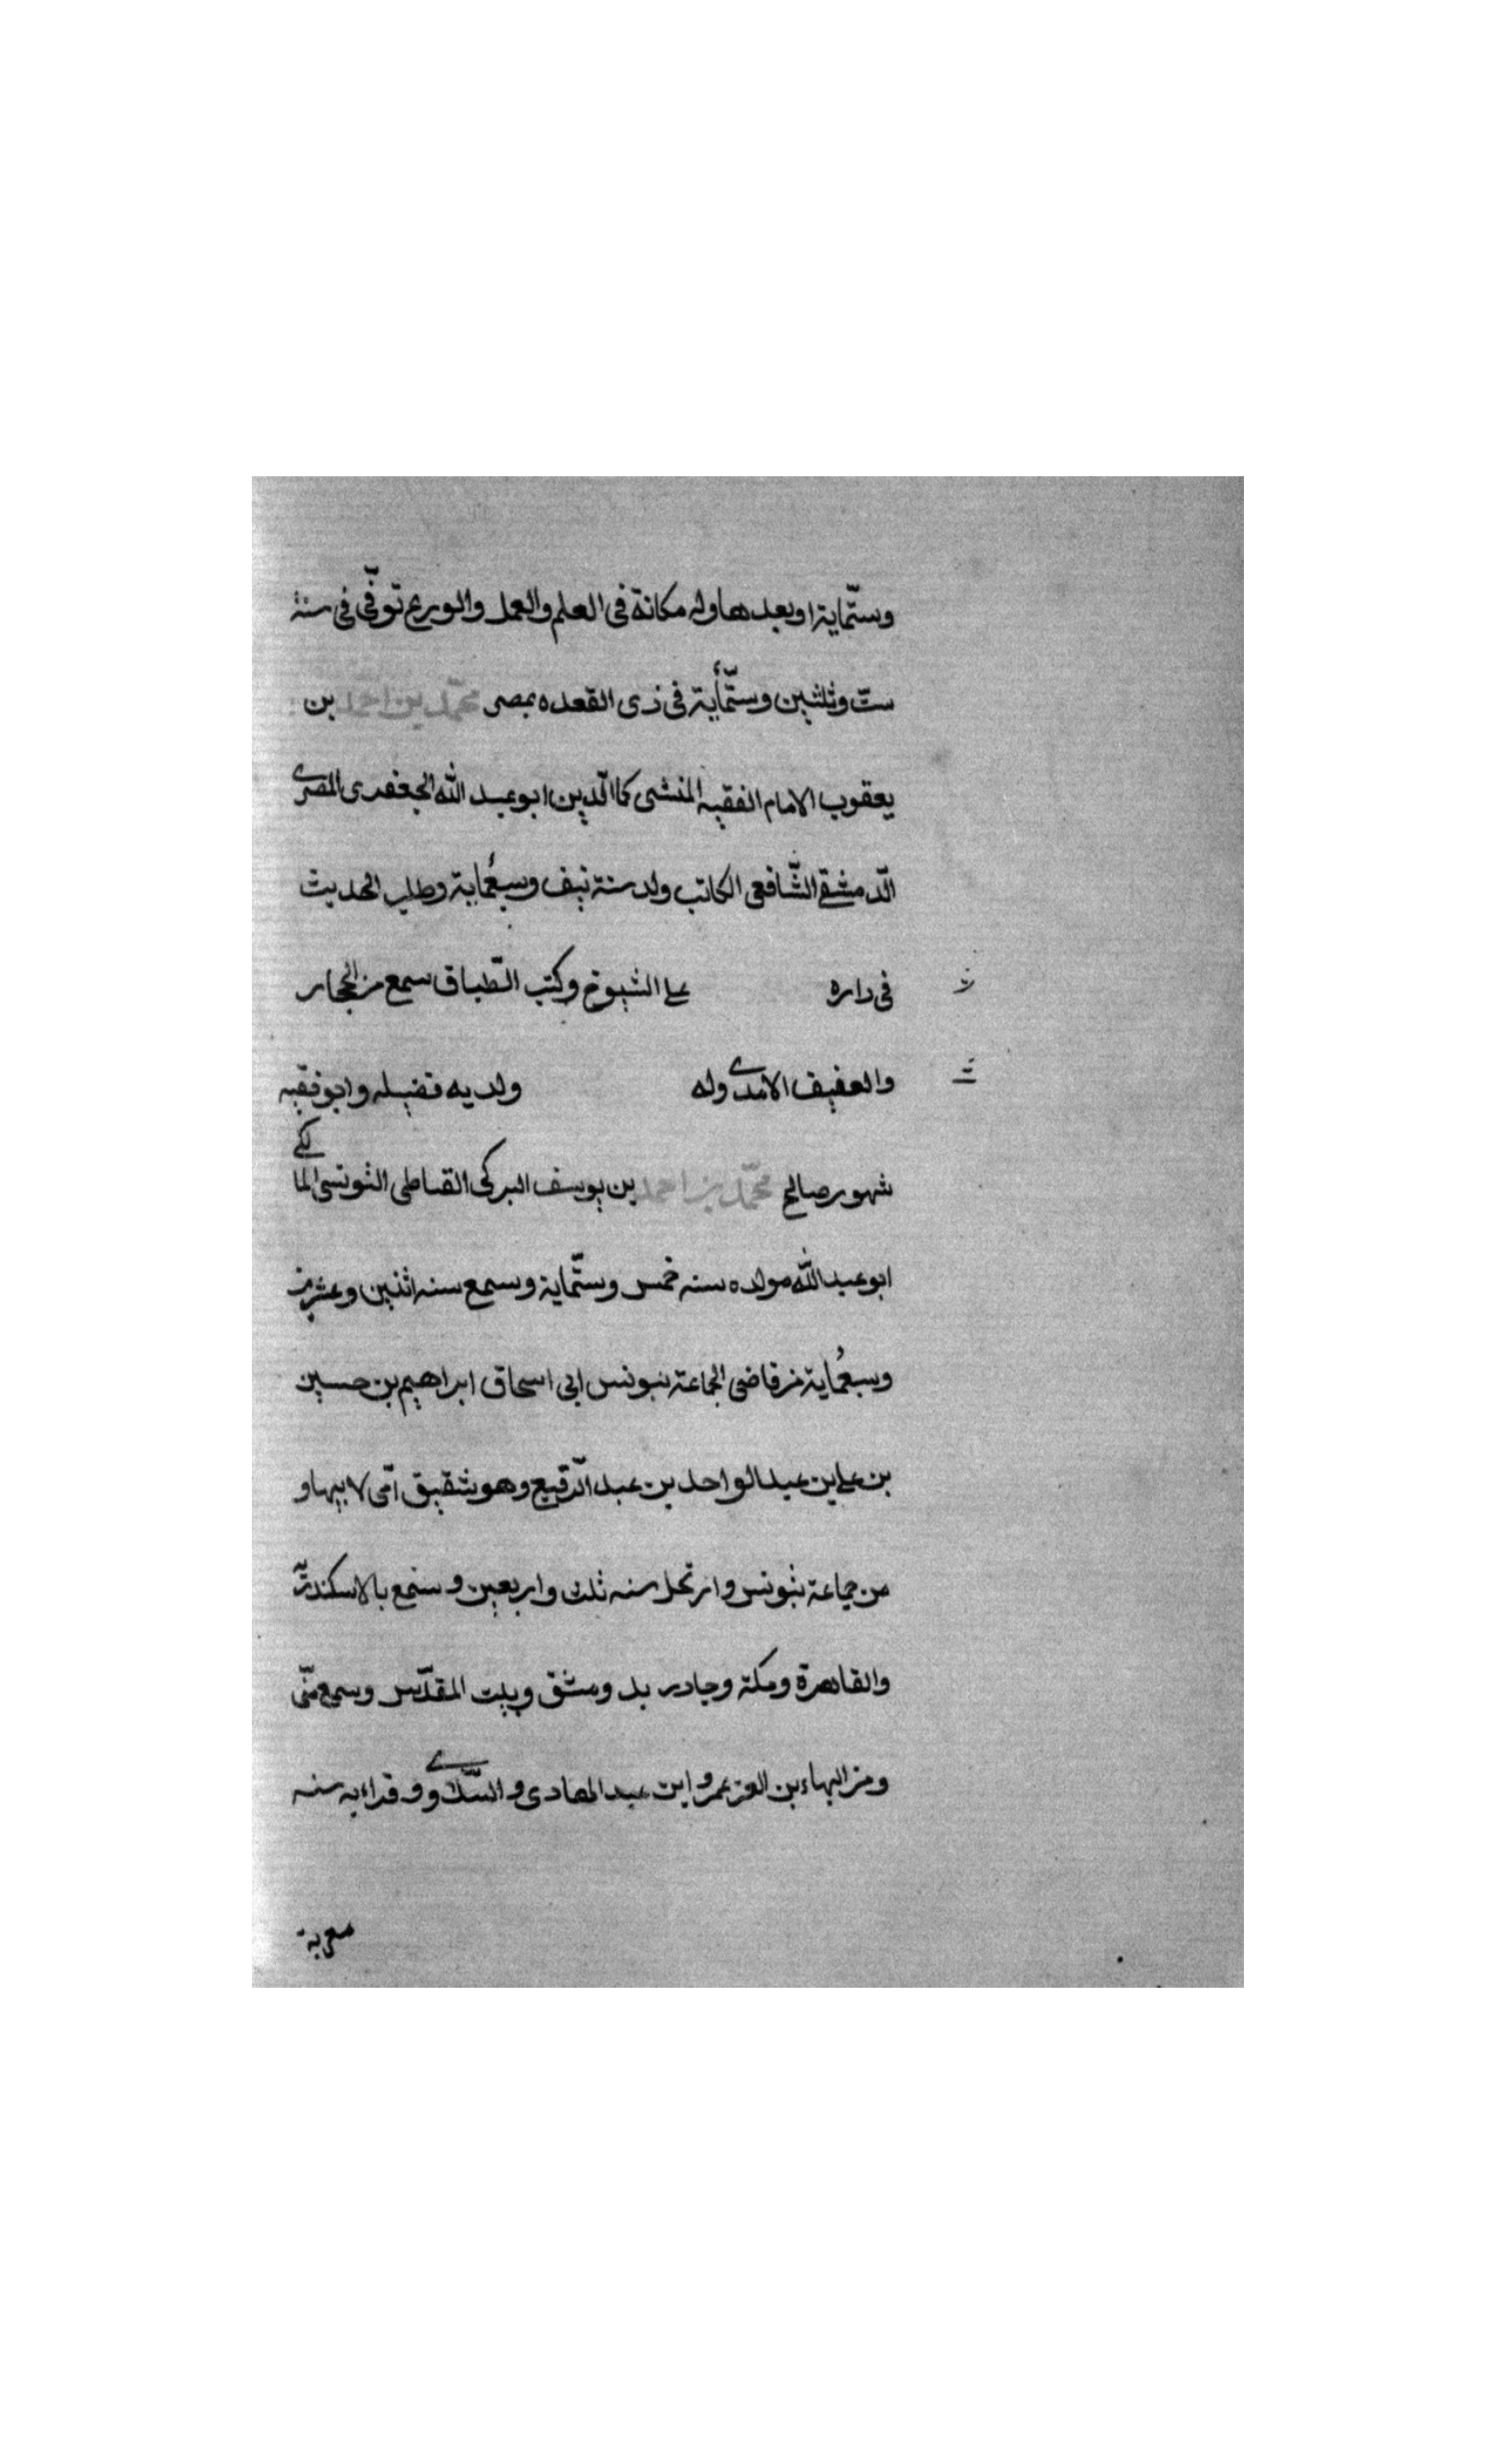 وستّماية اوبعدها وله مكانة فى العلم والعمل والورع توفّى فى سنة
ستّ وثلثين وستّمأية فى ذى القعده بمصر محمّد بن احمد بن
يعقوب الامام الفقيه المنشى كما الّدين ابو عبد الله الجعفرى المصرى
الّدمشقى الشّافعى الكاتب ولد سنة نيف وسبعُماية وطلب الحديث
فى داره على الشيوخ وكتب الطّباق سمع من الحجار
والعفيف الامدى وله ولديه فضيله وابو فقيه
شهور صالح محمّد بن احمد بن يوسف البركى القساطى التونسى المالكى
ابو عبد الله مولده سنه خمس وستّماية وسمع سنه اثنين وعشرين
وسبعُماية من قاضى الجماعة بتونس ابى اسحاق ابراهيم بن حسين
بن على بن عبد الواحد بن عبد الّرفيع وهو شقيق امّى لابيها و
من جماعة بتونس وارتحل سنه ثلث واربعين وسمع بالاسكندرّية
والقاهرة ومكة وجادر بد ومشق وبيت المقدّس وسمع منّى
ومن البهاء بن العز عمر وابن عبد الهادى و و وقراءبه سنه